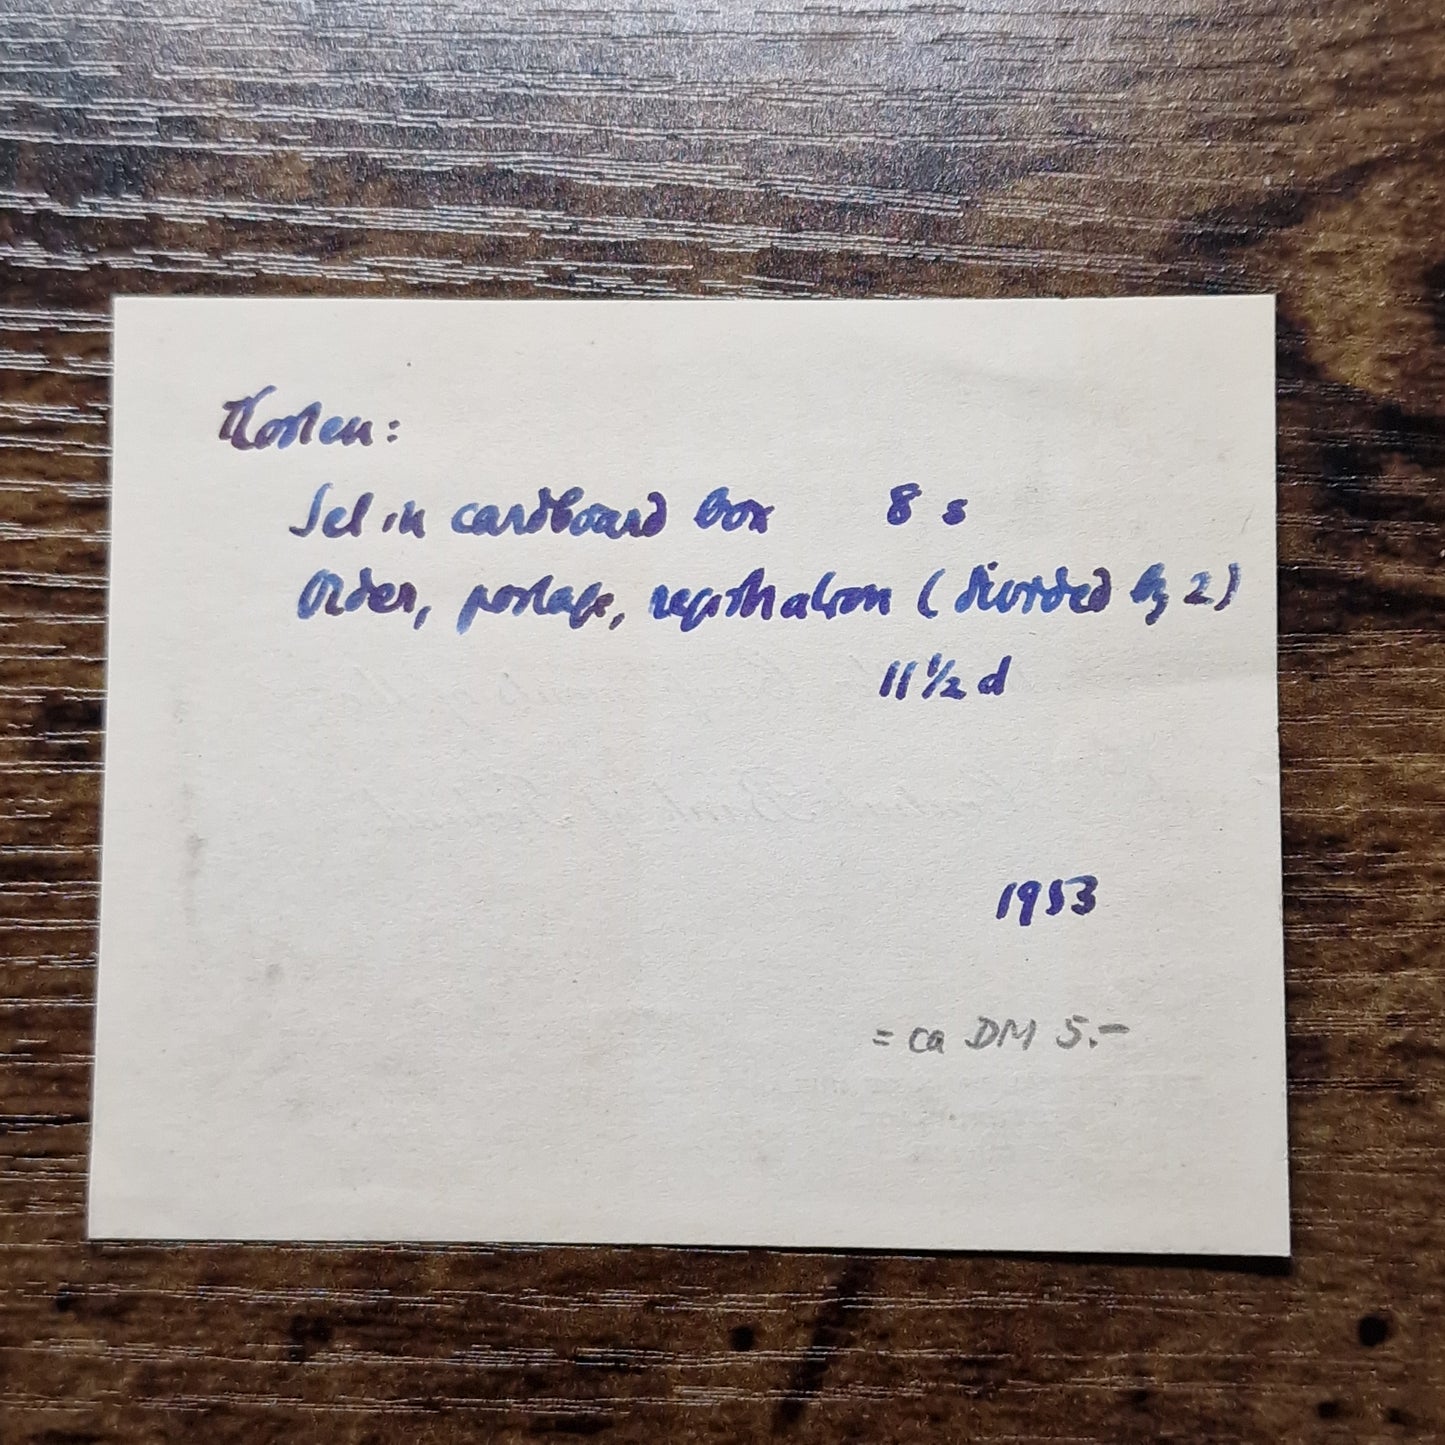 Kosten:
Set in cardboard box 8 s
Order, postage, registration (divided by 2)
11 ½ d
1953
= ca DM 5.-